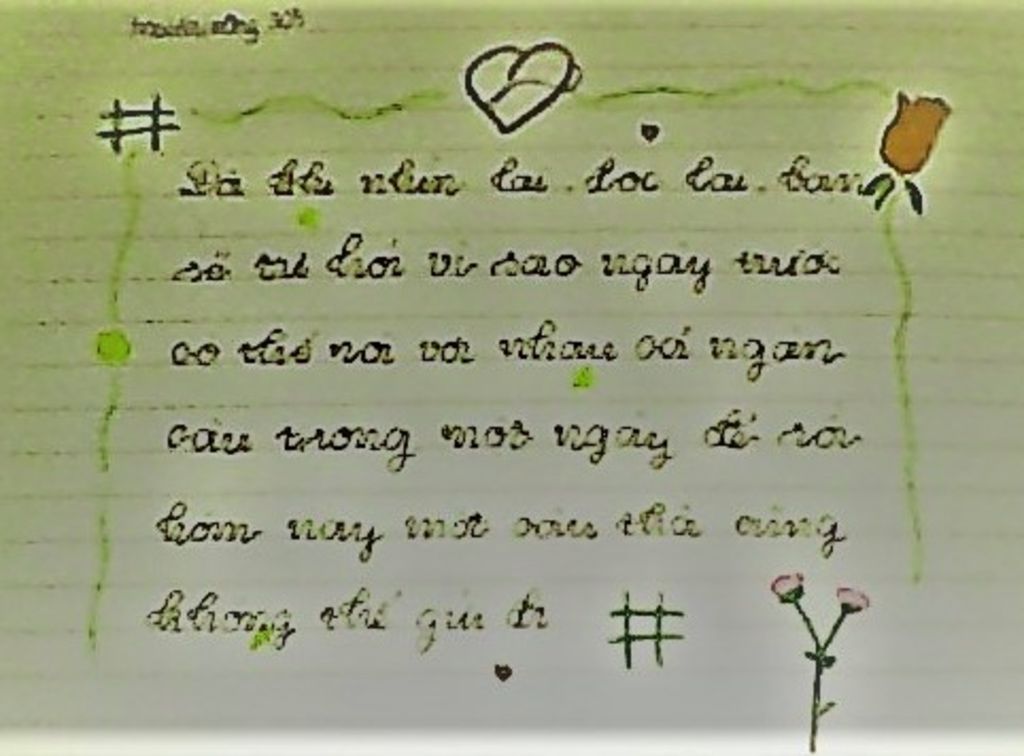 Đôi khi nhìn lại. đọc lại. bạn
sẽ tự hỏi vì sao ngày trước
có thể nói với nhau cả ngàn
câu trong một ngày để rồi
hôm nay một câu thôi cũng
không thể gửi đi